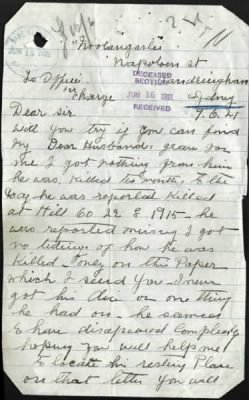 Woolangarlis
Napoleon St
To Officer Sandringham
in Charge Sydney
DECEASED
SECTION
JUN 16 1921
RECEIVED
7.6.21
Dear Sir
Will you try if you can find
My Dear Husbands grave for
me I got nothing from him
he was Killed two months to the
Day he was reported Killed
at Hill 60 22 8 1915 - he
was reported missing I got
no tidings of how he was
Killed only on this Paper
which I send you I never
got his disc or one thing
he had on he seemes
to have disapeared Completly
hoping you will help me
to locate his resting Place
on that letter you will